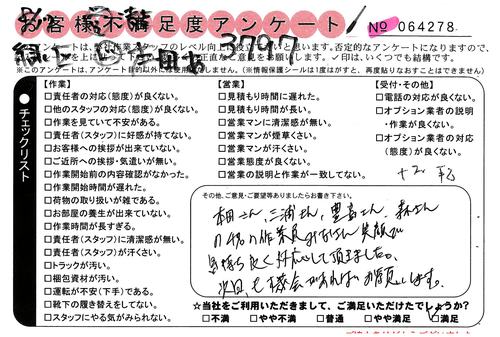 お客様不満足度アンケート
No 064278
3797
※このアンケートは、アンケート目的以外には使用いたしません。(※情報保護シールは1度はがすと、再度貼りなおすことはできません。)
チェックリスト
【作業】
□責任者の対応(態度)が良くない。
□他のスタッフの対応(態度)が良くない。
□作業を見ていて不安がある。
□責任者(スタッフ)に好感が持てない。
□お客様への挨拶が出来ていない。
□ご近所への挨拶・気遣いが無い。
□作業開始前の内容確認がなかった。
□作業開始時間が遅れた。
□荷物の取り扱いが雑である。
□お部屋の養生が出来ていない。
□作業時間が長すぎる。
□責任者(スタッフ)に清潔感が無い。
□責任者(スタッフ)が汗くさい。
□トラックが汚い。
□梱包資材が汚い。
□運転が不安(下手)である。
□靴下の履き替えをしてない。
□スタッフにやる気がみられない。
【営業】
□見積もり時間に遅れた。
□見積もり時間が長い。
□営業マンに清潔感が無い。
□営業マンが煙草くさい。
□営業マンが汗くさい。
□営業態度が良くない。
□営業の説明と作業が一致してない。
【受付・その他】
□電話の対応が良くない。
□オプション業者の説明・作業が良くない。
□オプション業者の対応(態度)が良くない。
その他、ご意見・ご要望等ありましたらお書き下さい。
本田さん、三浦さん、豊喜さん、森さん
の4名の作業員のみなさん笑顔で
気持ち良く対応して頂きました。
次回も機会があればお願いします。
☆当社をご利用いただきまして、ご満足いただけたでしょうか?
□不満 □やや不満 □普通 □やや満足 □満足